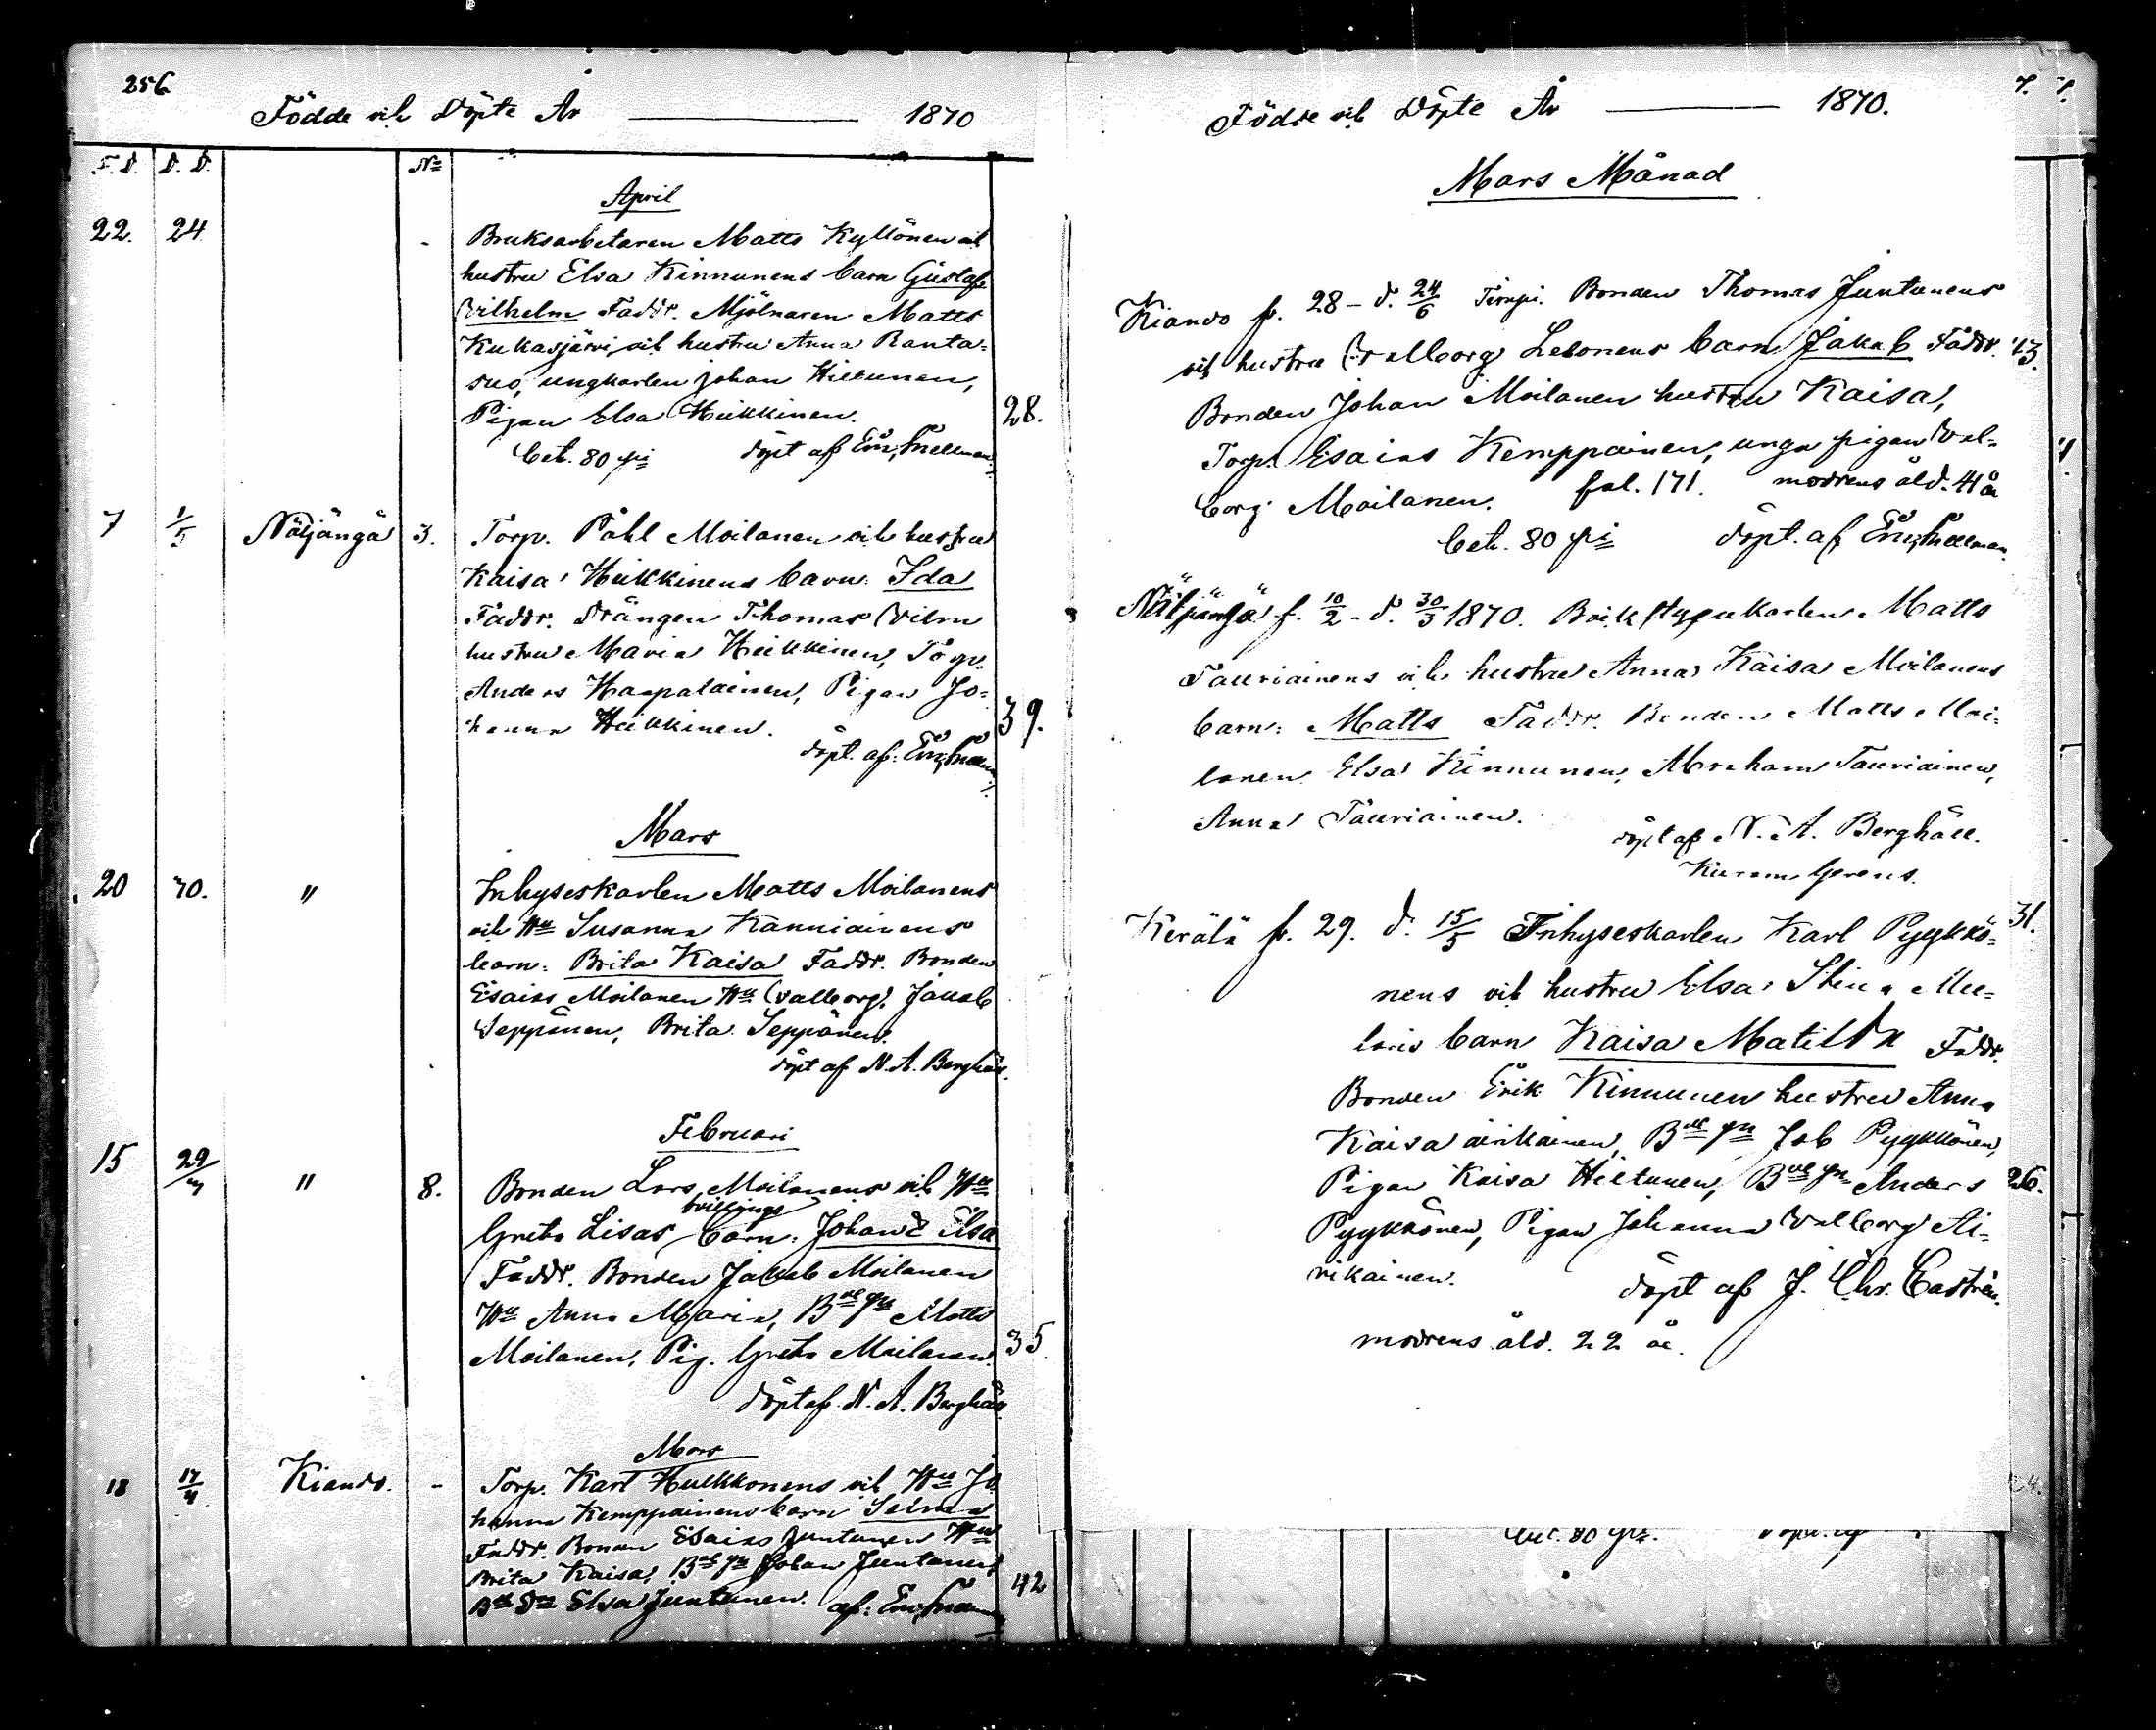 256
Födde och Döpte År 1870
F. D. D. D. No
April
22. 24 - Bruksarbetaren Matts Kyllönen och
hustru Elsa Kinnunens barn Gustaf
Vilhelm Faddr. Mjölnaren Matts
Kukasjärvi och hustru Anna Ranta-
suo, ungkarlen Johan Hiltunen,
Pigan Elsa Heikkinen. 28.
bet. 80 pi döpt af
7 1/5 Näljängä 3. Torp. Påhl Moilanen och hustru
Kaisa Heikkinens barn: Ida
Faddr. Drängen Thomas Vilm
hustru Maria Heikkinen, Torp.
Anders Haapalainen, Pigan Jo-
hanna Heikkinen. 39.
döpt af:
Mars
20 30. " Inhyseskarlen Matts Moilanens
och Hu Susanna Kanniainens
barn: Brita Kaisa Faddr. Bonden
Esaias Moilanen Hu Valborg, Jakob
Seppänen, Brita Seppänen.
döpt af N. A. Berghäll.
Februari
15 29/3 " 8. Bonden Lars Moilanens och Hu
tvillings
Greta Lisas barn: Johan & Elsa
Faddr. Bonden Jakob Moilanen
Hu Anna Maria, Bde Sn Matts
Moilanen, Pig. Greta Moilanen. 35
döpt af N. A. Berghäll.
Mars
18 17/4 Kiando. - Torp. Karl Hulkkonens och Hu Jo
hanna Kemppainens barn Selma
Faddr. Bonden Esaias Juntunen Hu
Brita Kaisa, Bde Sn Johan Juntunen,
Bde Dr Elsa Juntunen. 42
af:
Födde och Döpte År 1870.
Mars Månad
Kiando f. 28 - d. 24/6 Bonden Thomas Juntunens
och hustru Valborg Letonens barn Jakob Faddr. 43.
Bonden Johan Moilanen hustru Kaisa,
Torp. Esaias Kemppainen, unga pigan Val-
borg Moilanen. fol. 171. modrens åld. 41 år
bet. 80 pi döpt. af
Näljängä f. 10/2 - d. 30/3 1870. Backstugukarlen Matts
Tauriainens och hustru Anna Kaisa Moilanens
barn: Matts Faddr. Bonden Matts Moi-
lanen Elsa Kinnunen, Abraham Tauriainen,
Anna Tauriainen.
döpt af N. A. Berghäll.
Kerälä f. 29. d. 15/5 Inhyseskarlen Karl Pyykkö- 31.
nens och hustru Elsa Stina Mu-
loris barn Kaisa Matilda Faddr.
Bonden Erik Kinnunen hustru Anna
Kaisa Airikainen, Bde Sn Job Pyykkönen,
Pigan Kaisa Hiltunen, Bde Sn Anders 26.
Pyykkönen, Pigan Johanna Valborg Ai-
rikainen.
döpt af J. Chr. Castrén.
modrens åld. 22 år.
bet. 80 pi. döpt. af